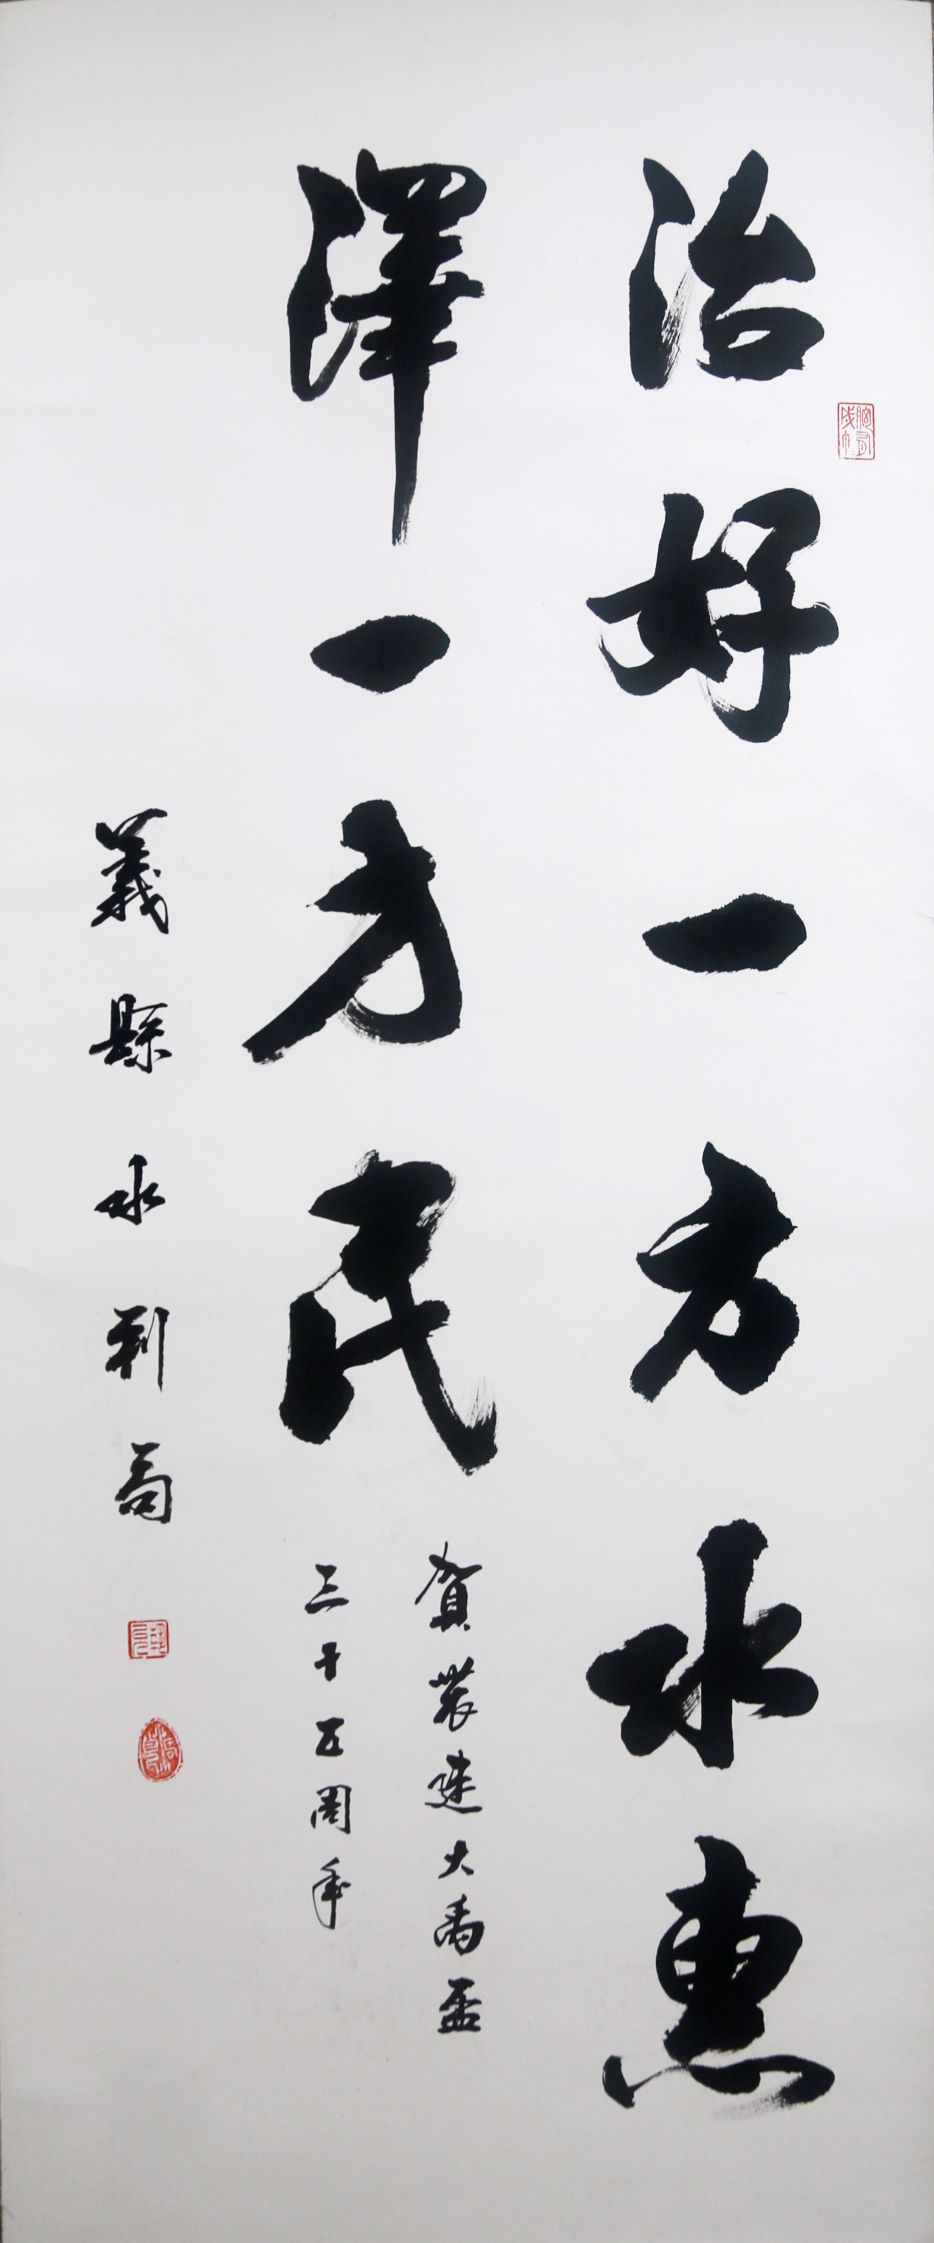 治好一方水惠
澤一方民
賀農建大禹盃
三十五周年
義縣水利局